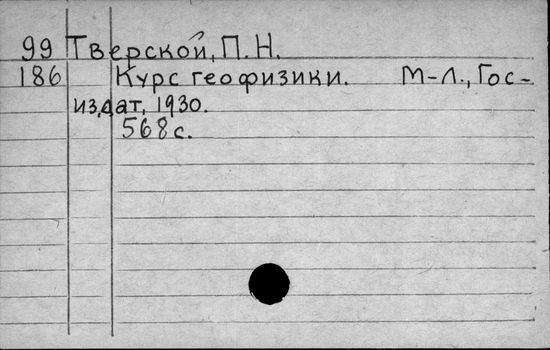 99 Тверской, П.Н.
186 Курс геофизики. М-Л., Гос-
издат, 1930.
568 с.